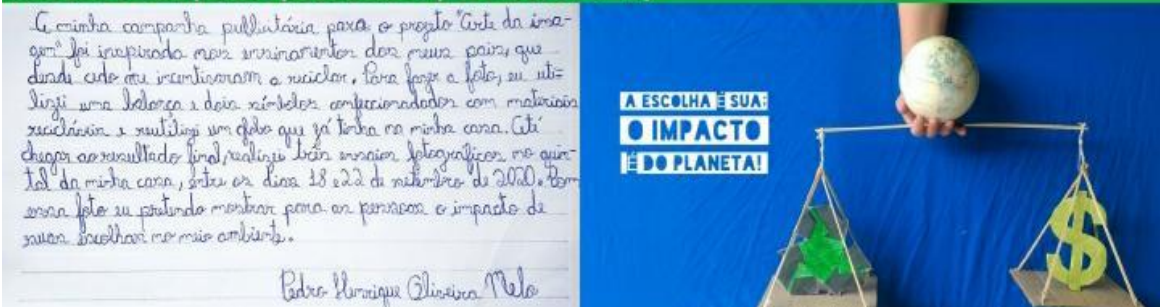 A minha campanha publicitária para o projeto "Arte da ima-
gem" foi inspirada nos ensinamentos dos meus pais, que
desde cedo me incentivaram a reciclar. Para fazer a foto, eu uti-
lizei uma balança e dois símbolos confeccionadados com materiais
recicláveis e reutilizei um globo que já tinha na minha casa. Até
chegar ao resultado final, realizei três ensaios fotográficos no quin-
tal da minha casa, entre os dias 18 e 22 de setembro de 2020. Com
essa foto eu pretendo mostrar para as pessoas o impacto de
suas escolhas no meio ambiente.
Pedro Henrique Oliveira Melo
A ESCOLHA É SUA:
O IMPACTO
É DO PLANETA!
$